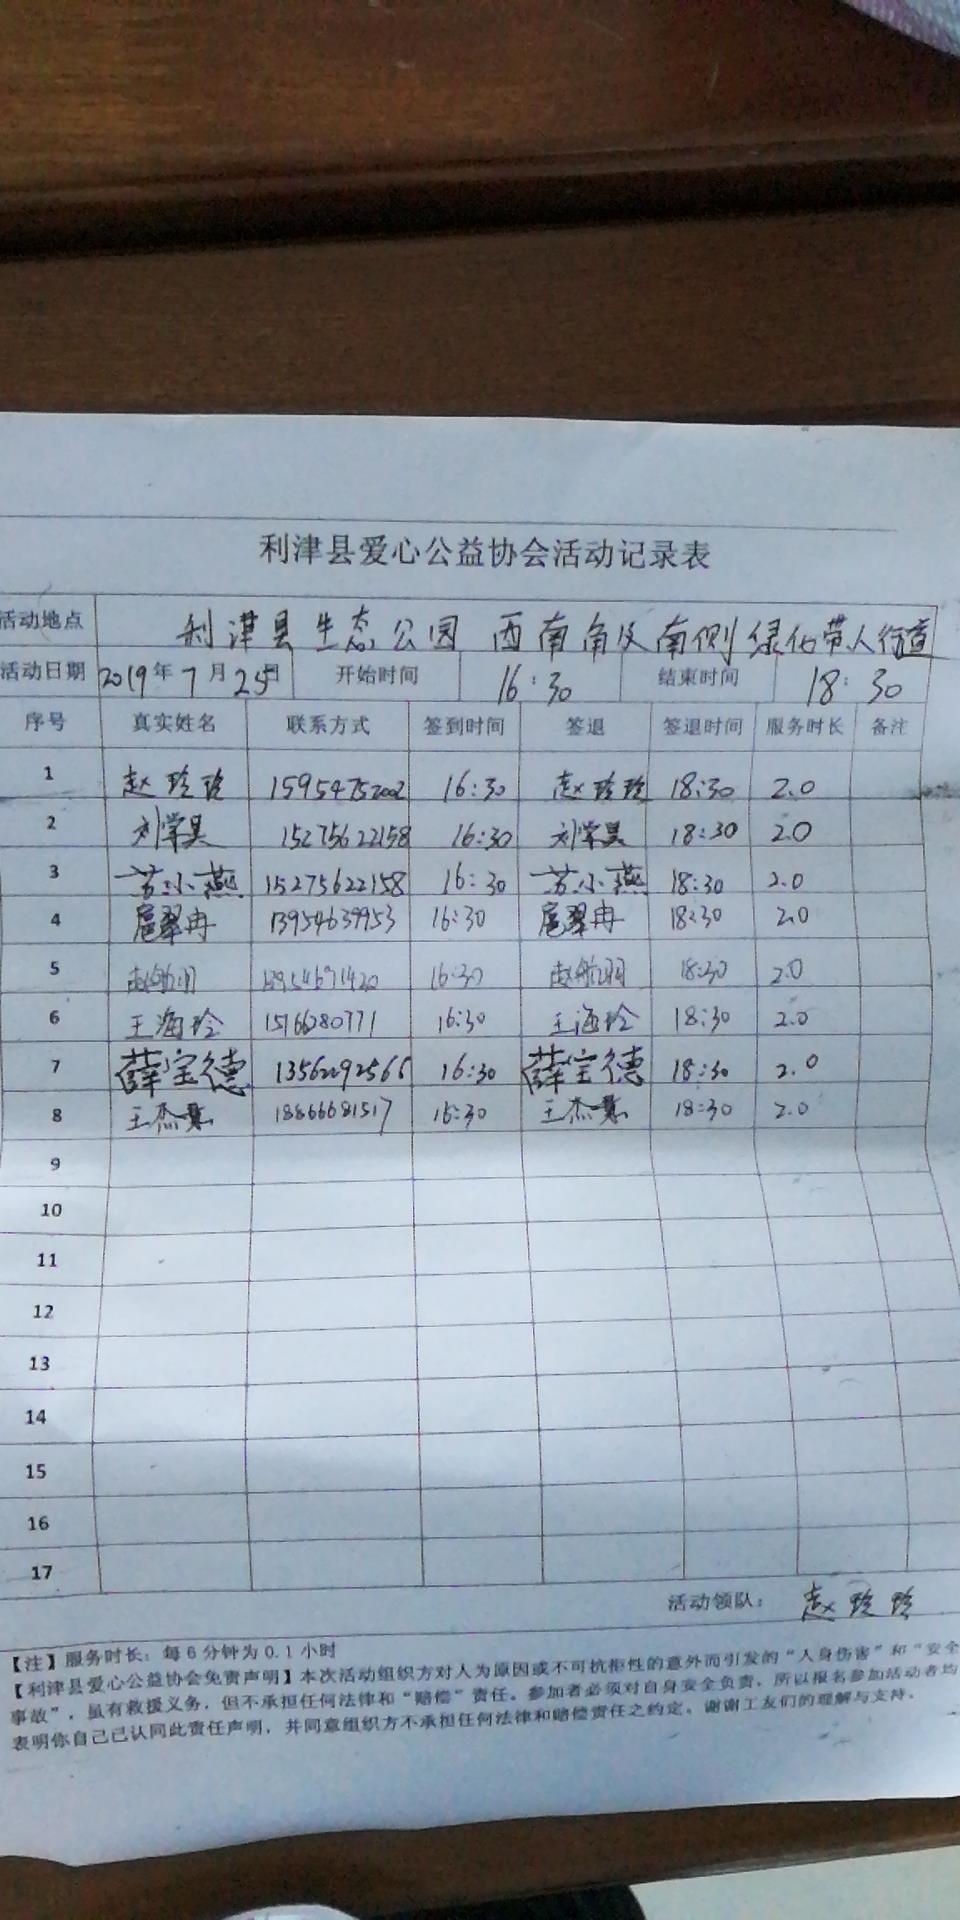 利津县爱心公益协会活动记录表
活动地点 利津县生态公园 西南角及南侧绿化带人行道
活动日期 2019年7月25日 开始时间 16:30 结束时间 18:30
序号 真实姓名 联系方式 签到时间 签退 签退时间 服务时长 备注
1 赵玲玲 15954752002 16:30 赵玲玲 18:30 2.0
2 刘学昊 15275622158 16:30 刘学昊 18:30 2.0
3 苏小燕 15275622158 16:30 苏小燕 18:30 2.0
4 扈翠冉 13954639953 16:30 扈翠冉 18:30 2.0
5 赵航羽 16:30 赵航羽 18:30 2.0
6 王海玲 15166280771 16:30 王海玲 18:30 2.0
7 薛宝德 13562092566 16:30 薛宝德 18:30 2.0
8 王杰 18866681517 16:30 王杰 18:30 2.0
9
10
11
12
13
14
15
16
17
活动领队： 赵玲玲
【注】服务时长：每6分钟为0.1小时
【利津县爱心公益协会免责声明】本次活动组织方对人为原因或不可抗拒性的意外而引发的“人身伤害”和“安全
事故”，虽有救援义务，但不承担任何法律和“赔偿”责任。参加者必须对自身安全负责，所以报名参加活动者均
表明你自己已认同此责任声明，并同意组织方不承担任何法律和赔偿责任之约定。谢谢工友们的理解与支持。